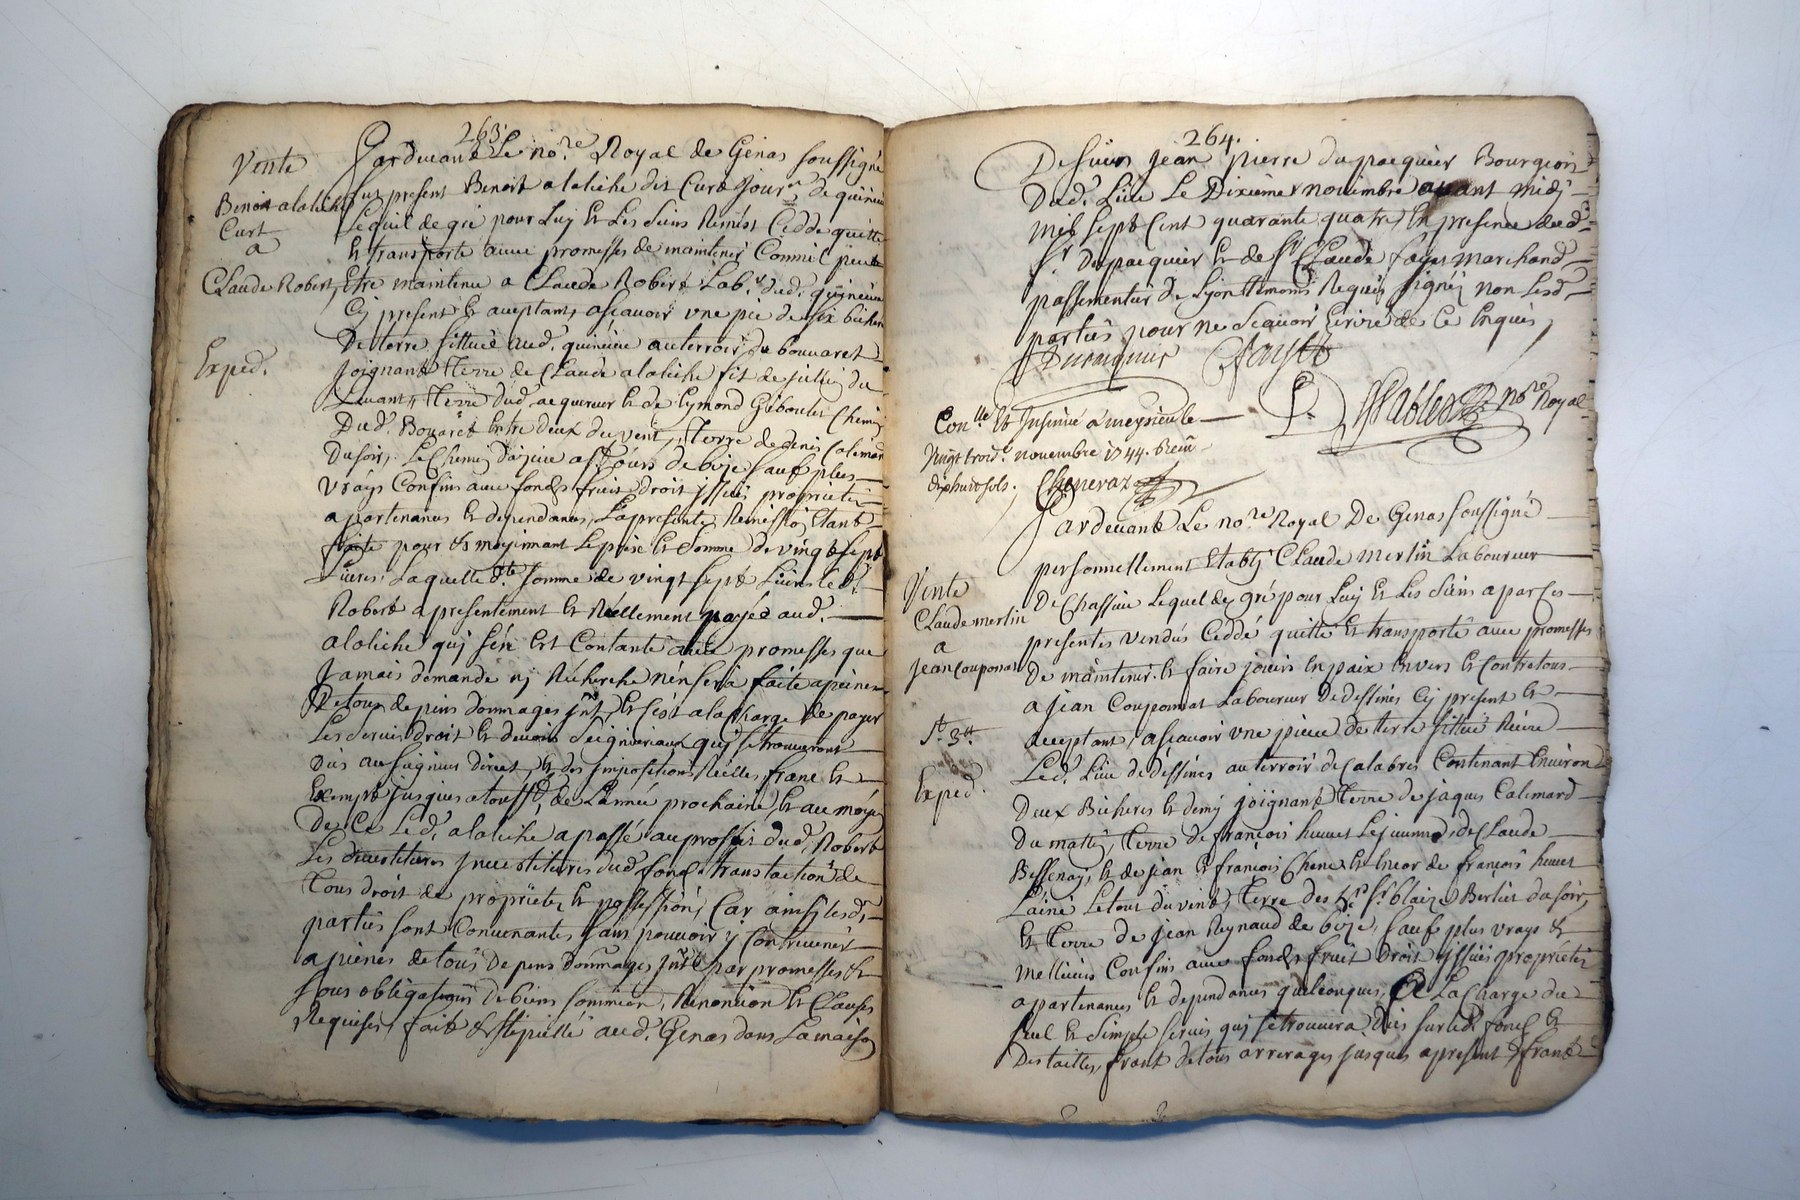 263.
Vente
Benoit alatiche
Curt
a
Claude Robert
Exped.
Pardevant Le no.re Royal de Genas soussigné
fut present Benoit alatiche dit Curt Jour.er de quinieu
Lequel de gré pour Luy et Les Siens Remest Cedde quitte
et transporte avec promesses de maintenir Comm'il peut
Etre maintenu a Claude Robert Lab.r dud. quinieu
Cy present et aceptant, ascavoir une pie de six bicheres
De terre sittuée aud. quinieu au terroir du bouvaret
joignant terre de Claude alatiche fils de
Levant, terre dud. aquereur et de Eymond Giboulet Chemin
Dud. Bouaret Entre deux du vent, terre de denis Calimard
Du soir, Le Chemin de bize sauf plus
vrays Confins avec fonds fruit droit issues proprietés
apartenances et dependances, La presente Remission Etant
faite pour et moyennant Le prix et Somme de vingt sept
Livres, Laquelle d.te Somme de vingt sept Livres Le d.
Robert a presentement et Réellement payée aud.
alatiche qui s'en Est Contanté avec promesses que
Jamais demande ny Recherche n'en sera faite a peine
De tous depens dommages jnts, et c'est a la Charge de payer
Les servis droit et devoirs Seigneuriaux qui se trouveront
Dus au seigneur direct, et des jmpositions Réelles, franc et
Exempt jusques a toussts de L'année prochaine, et au moyen
De Ce Led. alatiche a passé au proffit dud. Robert
Les devestitures jnvestitures dud. fond, translaction de
tous droit de proprieté et possession, Car ainsy Lesd.
parties sont Convenantes sans pouvoir y Contrevenir
a peines de tous Depens dommages jnts par promesses et
sous obligations De biens soumission, Renontion et Clauses
Requises, fait et stipullé aud. Genas dans La maison
264.
De sieur jean pierre dupacquier Bourgeois
Dud. Lieu Le Dixieme novembre avant midy
mil sept Cent quarante quatre, En presence dud.
S.r Dupacquier et de S.r Claude fayet marchand
passementier de Lyon temoins Requis signés non Lesd.
parties pour ne Scavoir Ecrire de Ce Enquis
Dupacquier Fayet
P. no.re Royal
Con.llé Et Insinué a meyzieu le
Vingt trois.e novembre 1744. Reçu
dix huit sols. Cheneraz
Pardevant Le no.re Royal De Genas soussigné
Vente
Claude merlin
a
Jean Couponnat
Exped.
personnellement Etably Claude merlin Laboureur
De Chassieu Lequel de gré pour Luy et Les Siens a par Ces
presentes vendus Ceddé quitté et transporté avec promesses
De maintenir et faire jouir En paix Envers et Contre tous
a jean Couponnat Laboureur De dessines Cy present et
acceptant, ascavoir une piece de terre sittuée Riere
Led. Lieu de dessines au terroir de Calabres Contenant Environ
Deux Bicheres et demy joignant terre de jaques Calimard
Du matin, terre de françois huvet Lejeune, de Claude
Bessenay, et de jean et françois Chene et Encor de françois huvet
L'ainé Le tout du vent, terre des h.rs S.r Blaize Berlier du soir,
Et terre de jean Reynaud de bize, sauf plus vrays et
meillieurs Confins avec fonds fruit Droit issues proprietés
apartenances et dependances quelconques, a La Charge du
seul et simple servis qui se trouvera Dus sur led. fond et
Des tailles, franc de tous arrerages jusques a present, franc